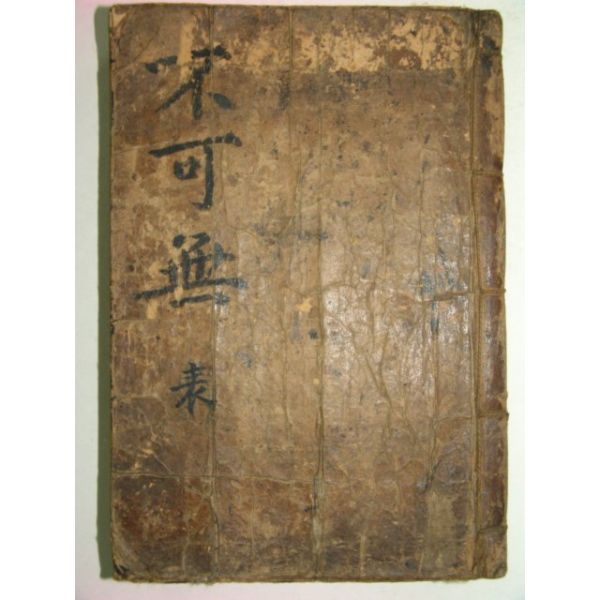 不可無
表